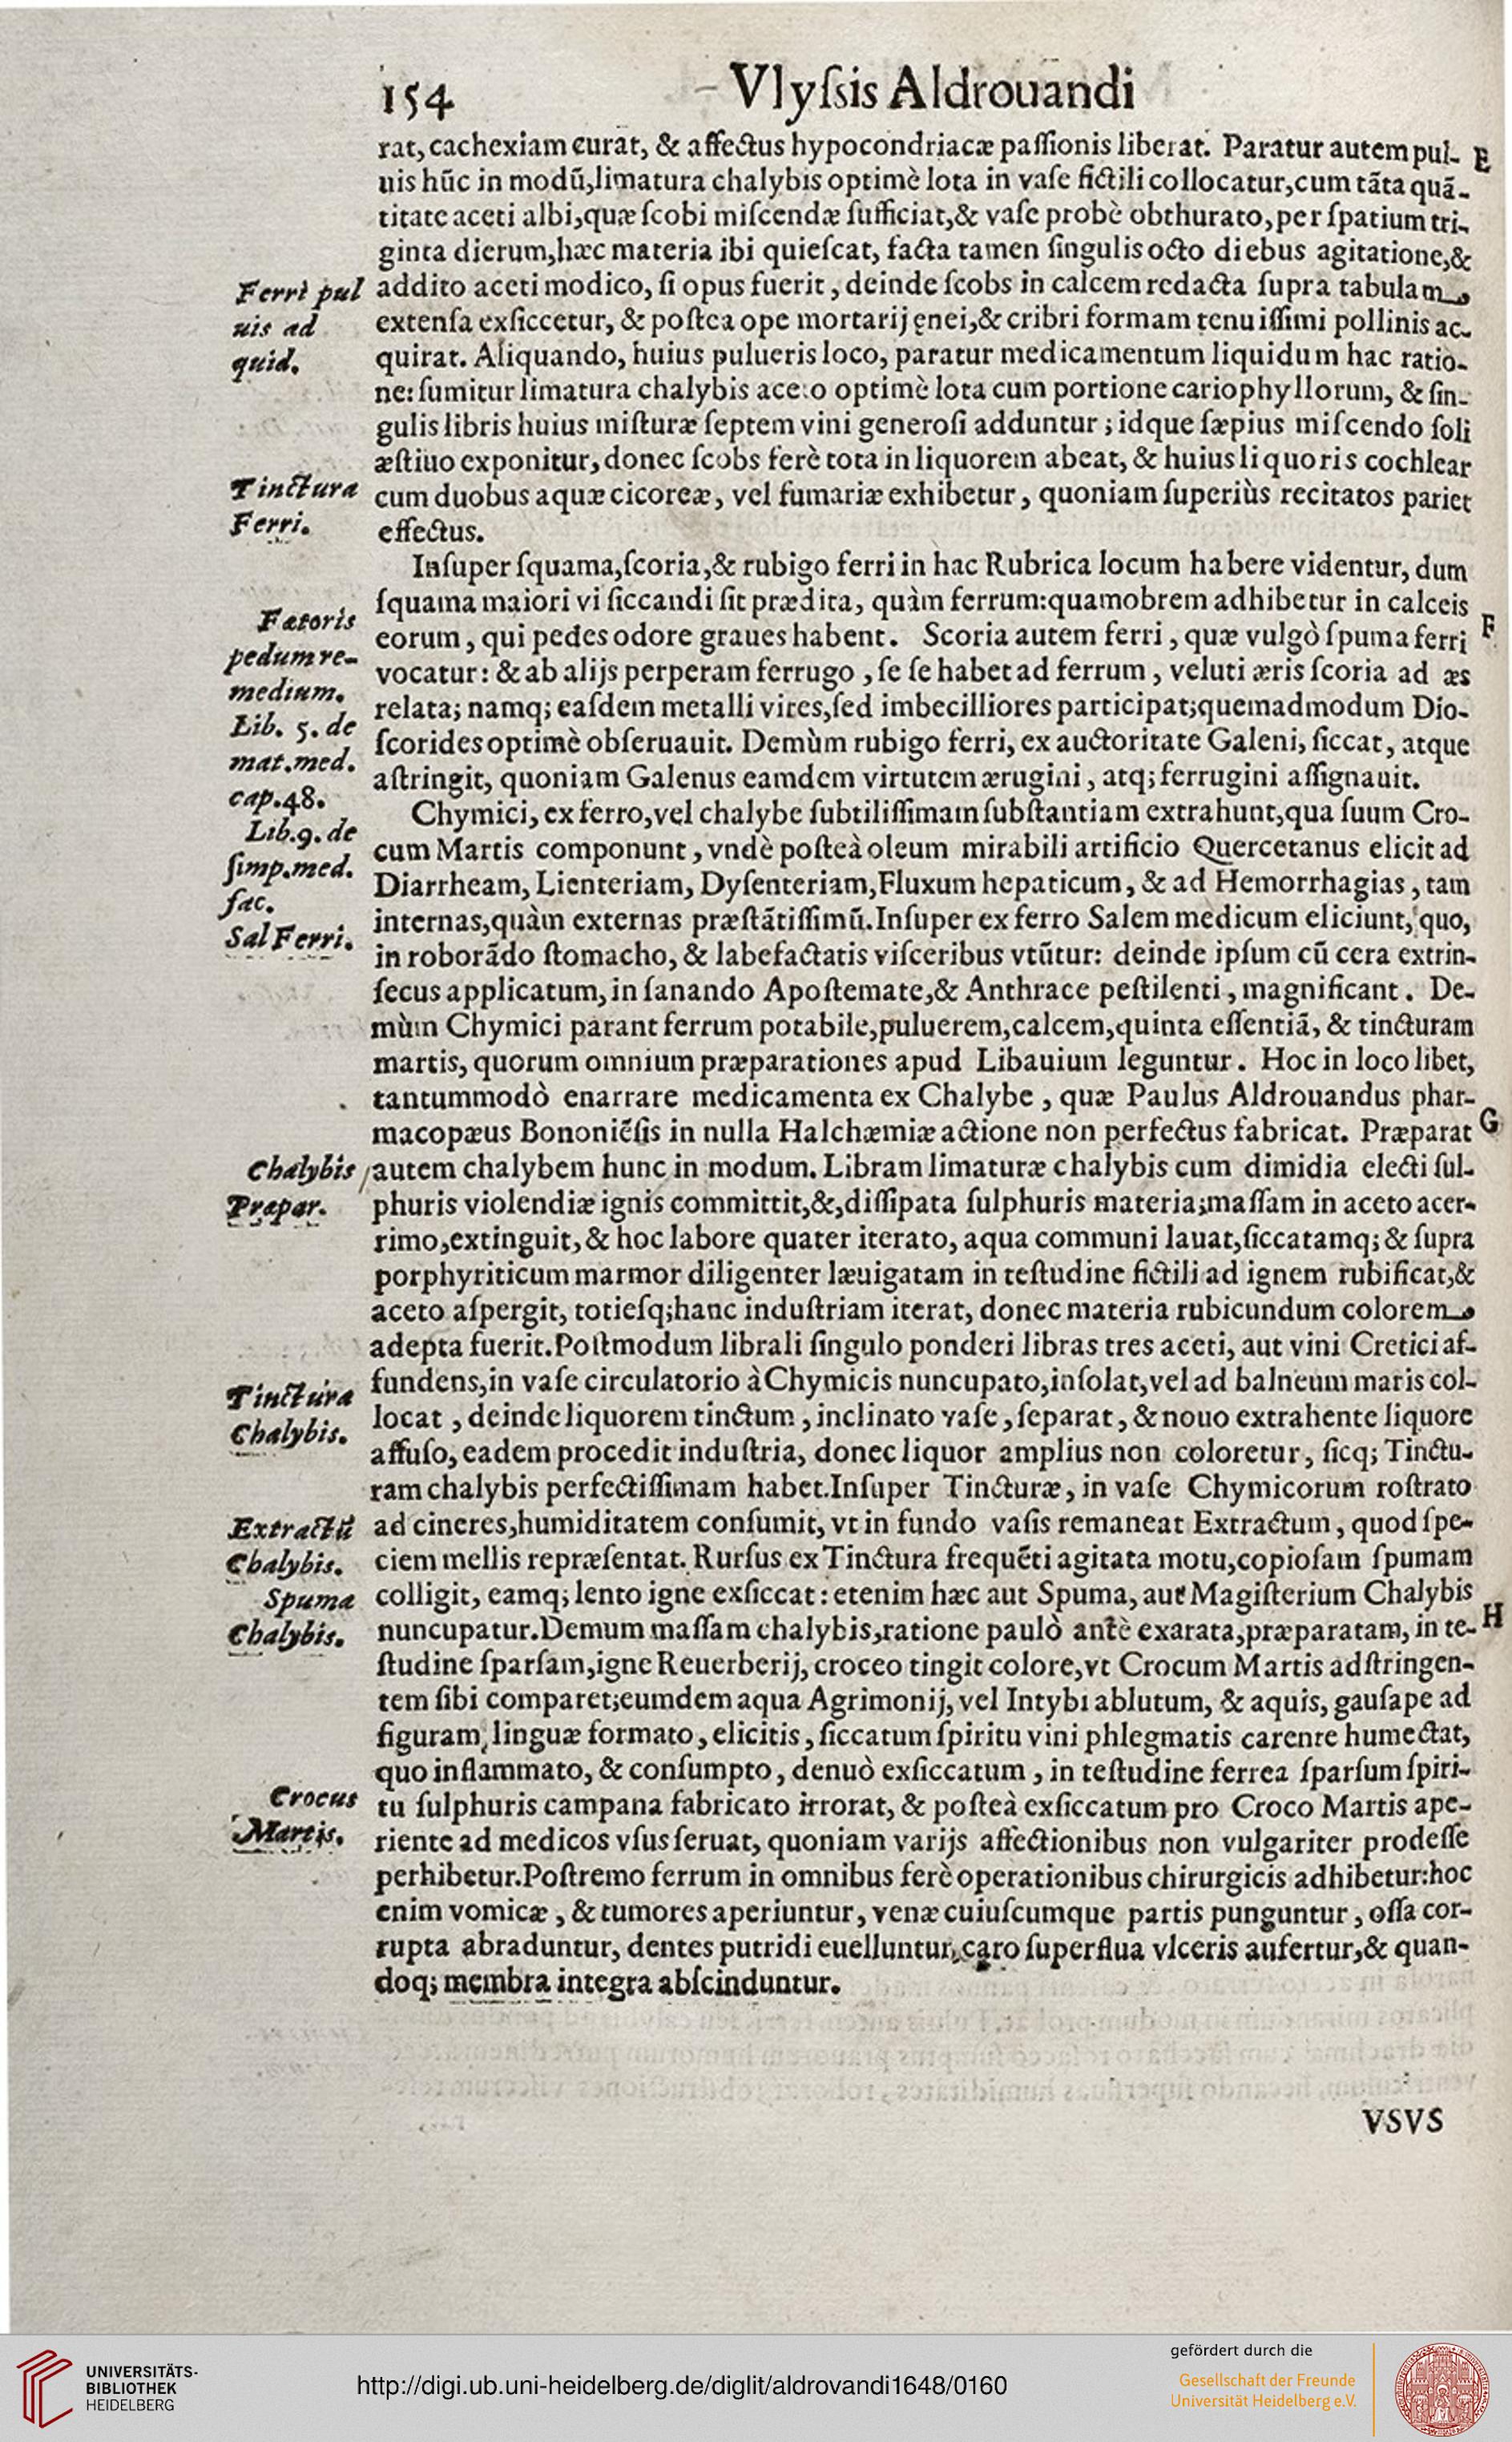 154
Vlyſsis Aldrouandi
rat, cachexiam curat, & affectus hypocondriacæ paſſionis liberat. Paratur autem pul-
uis hūc in modū, limatura chalybis optimè lota in vaſe fictili collocatur, cum tāta quā-
titate aceti albi, quæ ſcobi miſcendæ ſufficiat, & vaſe probè obthurato, per ſpatium tri-
ginta dierum, hæc materia ibi quieſcat, facta tamen ſingulis octo diebus agitatione, &
addito aceti modico, ſi opus fuerit, deinde ſcobs in calcem redacta ſupra tabulam
extenſa exſiccetur, & poſtea ope mortarij ęnei, & cribri formam tenuiſſimi pollinis ac-
quirat. Aliquando, huius pulueris loco, paratur medicamentum liquidum hac ratio-
ne: ſumitur limatura chalybis aceto optimè lota cum portione cariophyllorum, & ſin-
gulis libris huius miſturæ ſeptem vini generoſi adduntur; idque ſæpius miſcendo ſoli
æſtiuo exponitur, donec ſcobs ferè tota in liquorem abeat, & huius liquoris cochlear
cum duobus aquæ cicoreæ, vel fumariæ exhibetur, quoniam ſuperiùs recitatos pariet
effectus.
Inſuper ſquama, ſcoria, & rubigo ferri in hac Rubrica locum habere videntur, dum
ſquama maiori vi ſiccandi ſit prædita, quàm ferrum: quamobrem adhibetur in calceis
eorum, qui pedes odore graues habent. Scoria autem ferri, quæ vulgò ſpuma ferri
vocatur: & ab alijs perperam ferrugo, ſe ſe habet ad ferrum, veluti æris ſcoria ad æs
relata; namq; eaſdem metalli vires, ſed imbecilliores participat; quemadmodum Dio-
ſcorides optimè obſeruauit. Demùm rubigo ferri, ex auctoritate Galeni, ſiccat, atque
aſtringit, quoniam Galenus eamdem virtutem ærugini, atq; ferrugini aſſignauit.
Chymici, ex ferro, vel chalybe ſubtiliſſimam ſubſtantiam extrahunt, qua ſuum Cro-
cum Martis componunt, vndè poſteà oleum mirabili artificio Quercetanus elicit ad
Diarrheam, Lienteriam, Dyſenteriam, Fluxum hepaticum, & ad Hemorrhagias, tam
internas, quàm externas præſtātiſſimū. Inſuper ex ferro Salem medicum eliciunt, quo,
in roborādo ſtomacho, & labefactatis viſceribus vtūtur: deinde ipſum cū cera extrin-
ſecus applicatum, in ſanando Apoſtemate, & Anthrace peſtilenti, magnificant. De-
mùm Chymici parant ferrum potabile, puluerem, calcem, quinta eſſentiā, & tincturam
martis, quorum omnium præparationes apud Libauium leguntur. Hoc in loco libet,
tantummodò enarrare medicamenta ex Chalybe, quæ Paulus Aldrouandus phar-
macopæus Bononiēſis in nulla Halchæmiæ actione non perfectus fabricat. Præparat
autem chalybem hunc in modum. Libram limaturæ chalybis cum dimidia electi ſul-
phuris violendiæ ignis committit, &, diſſipata ſulphuris materia; maſſam in aceto acer-
rimo, extinguit, & hoc labore quater iterato, aqua communi lauat, ſiccatamq; & ſupra
porphyriticum marmor diligenter læuigatam in teſtudine fictili ad ignem rubificat, &
aceto aſpergit, totieſq; hanc induſtriam iterat, donec materia rubicundum colorem
adepta fuerit. Poſtmodum librali ſingulo ponderi libras tres aceti, aut vini Cretici af-
fundens, in vaſe circulatorio à Chymicis nuncupato, inſolat, vel ad balneum maris col-
locat, deinde liquorem tinctum, inclinato vaſe, ſeparat, & nouo extrahente liquore
affuſo, eadem procedit induſtria, donec liquor amplius non coloretur, ſicq; Tinctu-
ram chalybis perfectiſſimam habet. Inſuper Tincturæ, in vaſe Chymicorum roſtrato
ad cineres, humiditatem conſumit, vt in fundo vaſis remaneat Extractum, quod ſpe-
ciem mellis repræſentat. Rurſus ex Tinctura frequēti agitata motu, copioſam ſpumam
colligit, eamq; lento igne exſiccat: etenim hæc aut Spuma, aut Magiſterium Chalybis
nuncupatur. Demum maſſam chalybis, ratione paulò antè exarata, præparatam, in te-
ſtudine ſparſam, igne Reuerberij, croceo tingit colore, vt Crocum Martis adſtringen-
tem ſibi comparet; eumdem aqua Agrimonij, vel Intybi ablutum, & aquis, gauſape ad
figuram linguæ formato, elicitis, ſiccatum ſpiritu vini phlegmatis carente humectat,
quo inflammato, & conſumpto, denuò exſiccatum, in teſtudine ferrea ſparſum ſpiri-
tu ſulphuris campana fabricato irrorat, & poſteà exſiccatum pro Croco Martis ape-
riente ad medicos vſus ſeruat, quoniam varijs affectionibus non vulgariter prodeſſe
perhibetur. Poſtremo ferrum in omnibus ferè operationibus chirurgicis adhibetur: hoc
enim vomicæ, & tumores aperiuntur, venæ cuiuſcumque partis punguntur, oſſa cor-
rupta abraduntur, dentes putridi euelluntur, caro ſuperflua vlceris aufertur, & quan-
doq; membra integra abſcinduntur.
VSVS
Ferri pul
uis ad
quid.
Tinctura
Ferri.
Fætoris
pedum re-
medium.
Lib. 5. de
mat. med.
cap. 48.
Lib. 9. de
ſimp. med.
fac.
Sal Ferri.
Chalybis
Præpar.
Tinctura
Chalybis.
Extractū
Chalybis.
Spuma
Chalybis.
Crocus
Martis.
E
F
G
H
UNIVERSITÄTS-
BIBLIOTHEK
HEIDELBERG
http://digi.ub.uni-heidelberg.de/diglit/aldrovandi1648/0160
gefördert durch die
Gesellschaft der Freunde
Universität Heidelberg e.V.